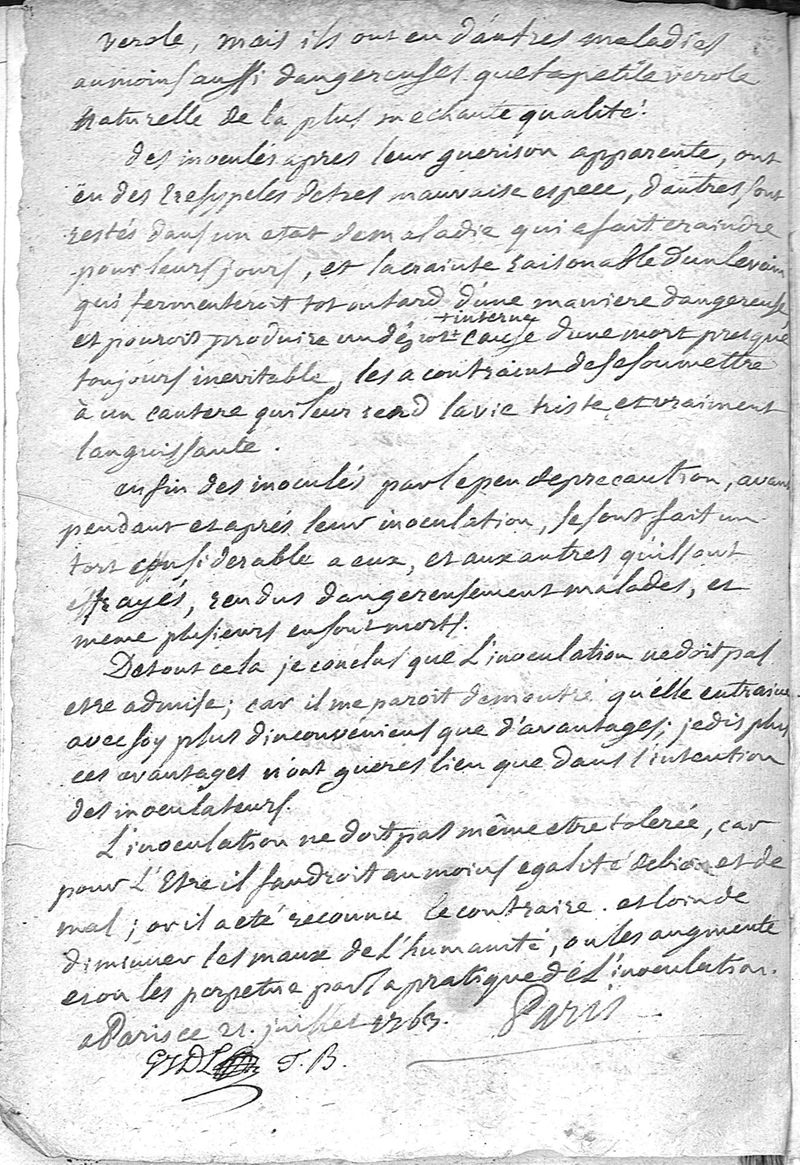 verole, mais ils ont eu d'autres maladies
au moins aussi dangereuses que la petite verole
naturelle de la plus mechante qualité.
des inoculés apres leur guerison apparente, ont
eu des Eresypeles de tres mauvaise espece, d'autres sont
restés dans un etat de maladie qui a fait craindre
pour leurs jours, et la crainte raisonable d'un levain
qui fermenteroit tot ou tard d'une maniere dangereuse,
+ interne
et pouroit produire un dépot + cause d'une mort presque
toujours inevitable, les a contraint de se soumettre
à un cautere qui leur rend la vie triste, et vraiment
languissante.
enfin des inoculés par le peu de precaution, avant
pendant et aprés leur inoculation, se sont fait un
tort considerable a eux, et aux autres qu'ils ont
effrayés, rendus dangereusement malades, et
même plusieurs en sont morts.
De tout cela je conclus que L'inoculation ne doit pas
etre admise; car il me paroit demontré qu'elle entraine
avec soy plus d'inconveniens que d'avantages; je dis plus
ces avantages n'ont gueres lieu que dans l'intention
des inoculateurs.
L'inoculation ne doit pas même etre tolerée, car
pour L'Etre il faudroit au moins egalité de bien et de
mal; or il a eté reconnu le contraire. et loin de
diminuer les maux de L'humanité, on les augmente
et on les perpetue par la pratique de L'inoculation.
a Paris ce 21. juillet 1763. Paris
T. B.